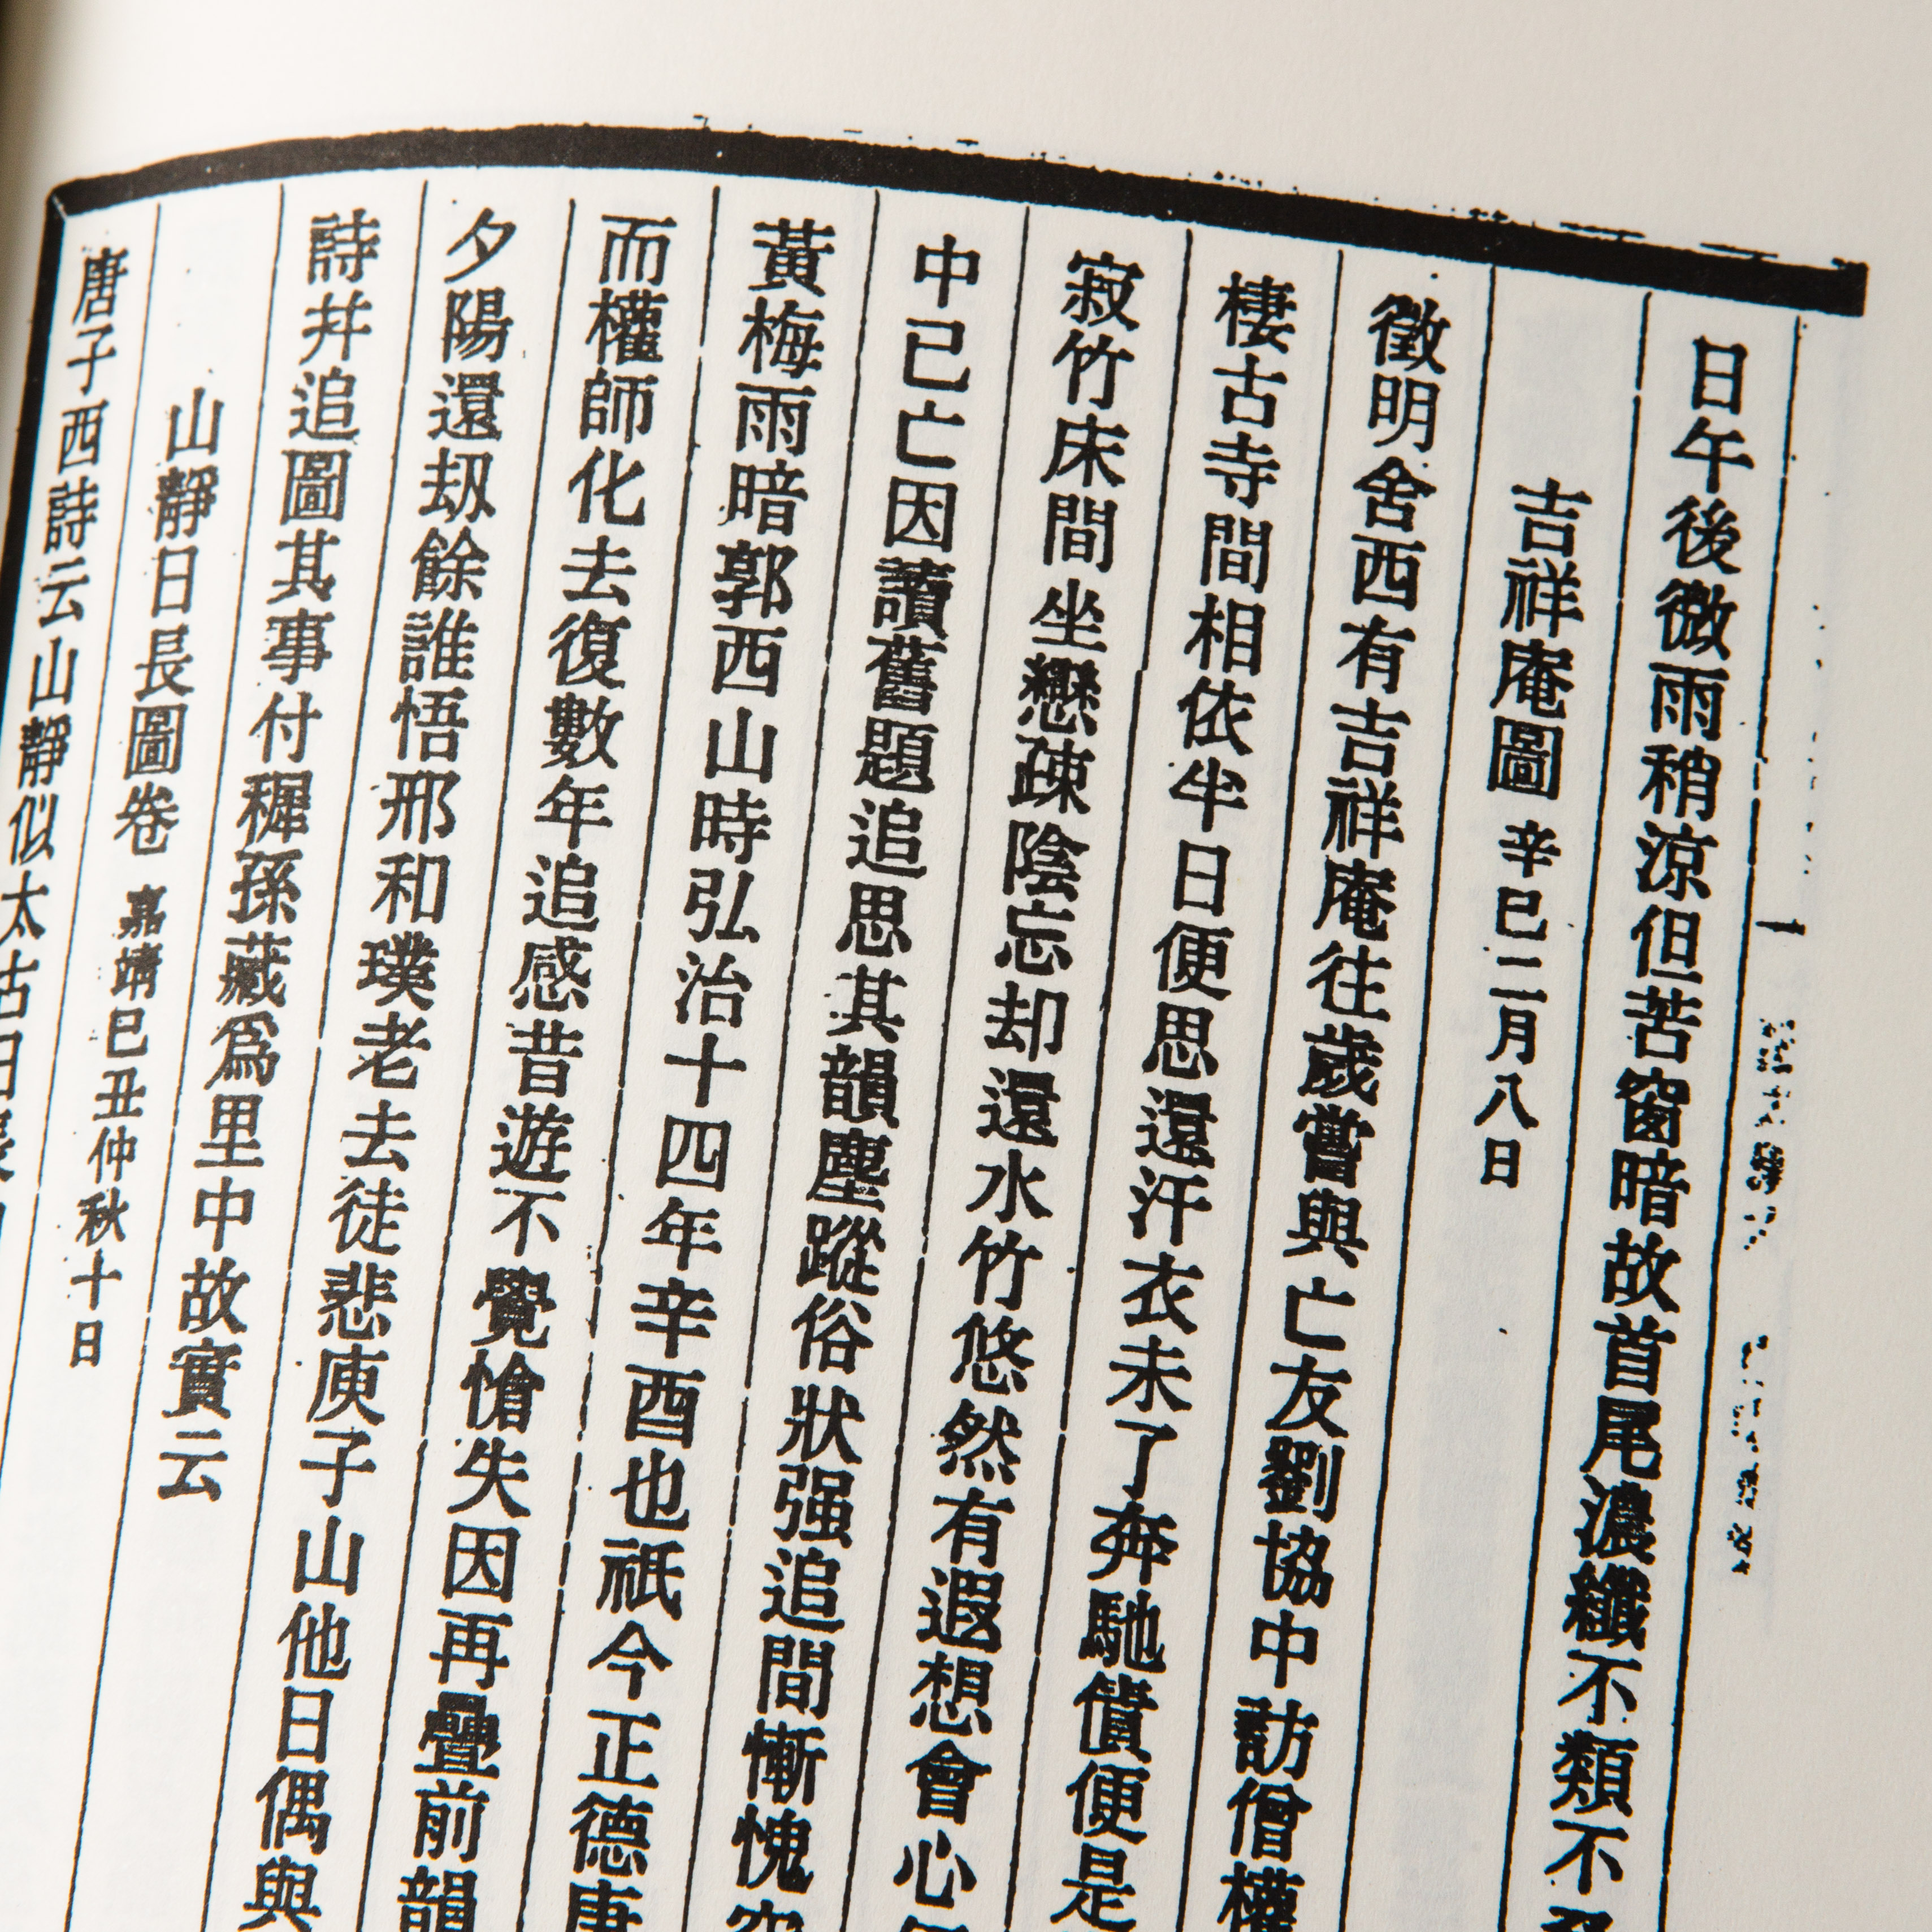 日午後微雨稍涼但苦窗暗故首尾濃纖不類不
吉祥庵圖 辛巳二月八日
徵明舍西有吉祥庵往歲嘗與亡友劉協中訪僧權
棲古寺間相依半日便思還汗衣未了奔馳債便是
寂竹床間坐戀疎陰忘却還水竹悠然有遐想會心
中已亡因讀舊題追思其韻塵蹤俗狀强追間慚愧
黃梅雨暗郭西山時弘治十四年辛酉也祇今正德
而權師化去復數年追感昔遊不覺愴失因再疊前韻
夕陽還刼餘誰悟邢和璞老去徒悲庾子山他日偶與
詩并追圖其事付穉孫藏爲里中故實云
山靜日長圖卷 嘉靖巳丑仲秋十日
唐子西詩云山靜似太古日長